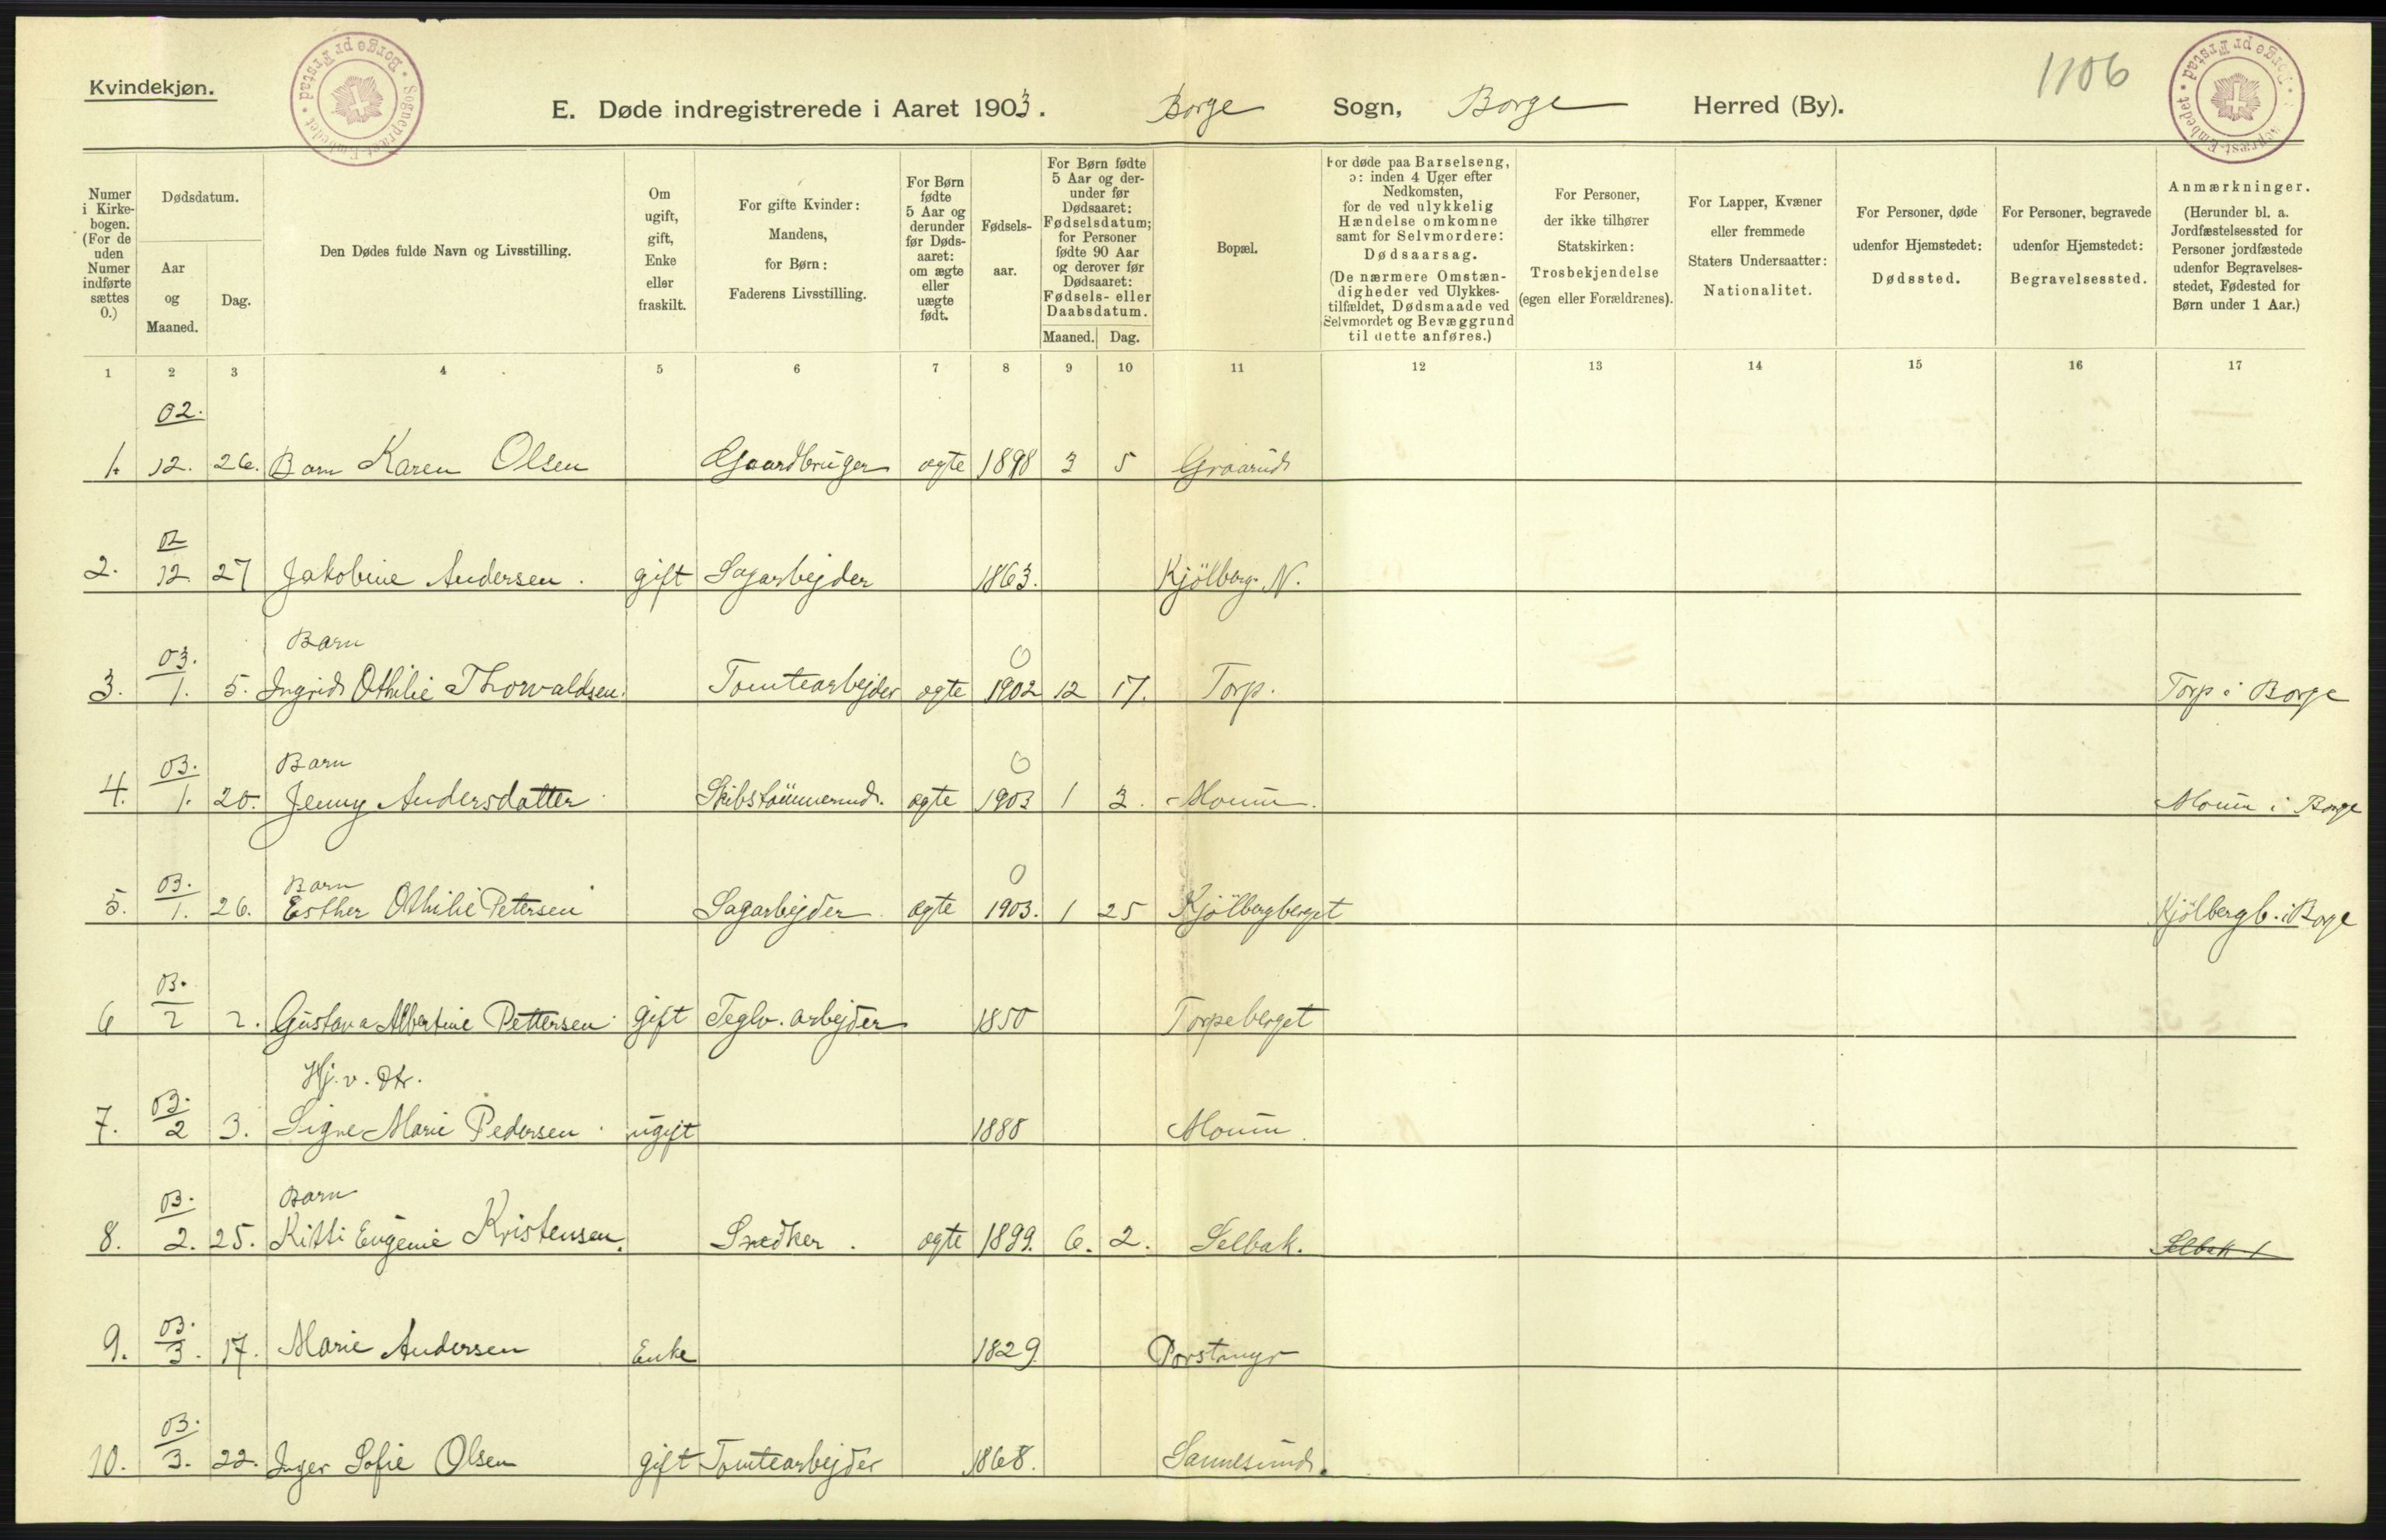 Kvindekjøn.
Sognepræst-Embedet • Borge pr Frstad •
E. Døde indregistrerede i Aaret 1903. Borge Sogn, Borge Herred (By).
1106
Numer i Kirkebogen. (For de uden Numer indførte sættes 0.)
Dødsdatum.
Aar og Maaned.
Dag.
Den Dødes fulde Navn og Livsstilling.
Om ugift, gift, Enke eller fraskilt.
For gifte Kvinder: Mandens, for Børn: Faderens Livsstilling.
For Børn fødte 5 Aar og derunder før Dødsaaret: om ægte eller uægte født.
Fødselsaar.
For Børn fødte 5 Aar og derunder før Dødsaaret: Fødselsdatum; for Personer fødte 90 Aar og derover før Dødsaaret: Fødsels- eller Daabsdatum.
Maaned. Dag.
Bopæl.
For døde paa Barselseng, ɔ: inden 4 Uger efter Nedkomsten, for de ved ulykkelig Hændelse omkomne samt for Selvmordere: Dødsaarsag. (De nærmere Omstændigheder ved Ulykkestilfældet, Dødsmaade ved Selvmordet og Bevæggrund til dette anføres.)
For Personer, der ikke tilhører Statskirken: Trosbekjendelse (egen eller Forældrenes).
For Lapper, Kvæner eller fremmede Staters Undersaatter: Nationalitet.
For Personer, døde udenfor Hjemstedet: Dødssted.
For Personer, begravede udenfor Hjemstedet: Begravelsessted.
Anmærkninger. (Herunder bl. a. Jordfæstelsessted for Personer jordfæstede udenfor Begravelsesstedet, Fødested for Børn under 1 Aar.)
1 2 3 4 5 6 7 8 9 10 11 12 13 14 15 16 17
02.
1. 12. 26. Barn Karen Olsen Gaardbruger ægte 1898 3 5 Graarud
02
2. 12 27 Jakobine Andersen. gift Sagarbejder 1863. Kjölberg N.
03. Barn 0
3. 1. 5. Ingrid Othilie Thorvaldsen. Tomtearbejder ægte 1902 12 17. Torp. Torp i Borge
03. Barn 0
4. 1. 20. Jenny Andersdatter Skibstömmermd. ægte 1903 1 3. Moum. Moum i Borge
03. Barn 0
5. 1. 26. Esther Othilie Petersen Sagarbejder ægte 1903. 1 25 Kjölbergberget Kjölbergb. i Borge
03.
6 2 2. Gustava Albertine Pettersen gift Teglv. arbejder 1850 Torpeberget
03. Hj. v. Dtr.
7. 2 3. Signe Marie Pedersen ugift 1885 Moum.
03. Barn
8. 2. 25. Kitti Eugenie Kristensen. Snedker. ægte 1899. 6. 2. Selbak. Selbak
03.
9. 3. 17. Marie Andersen Enke 1829. Porsmyr
03.
10. 3. 22. Inger Sofie Olsen gift Tomtearbejder 1868. Sannesund.